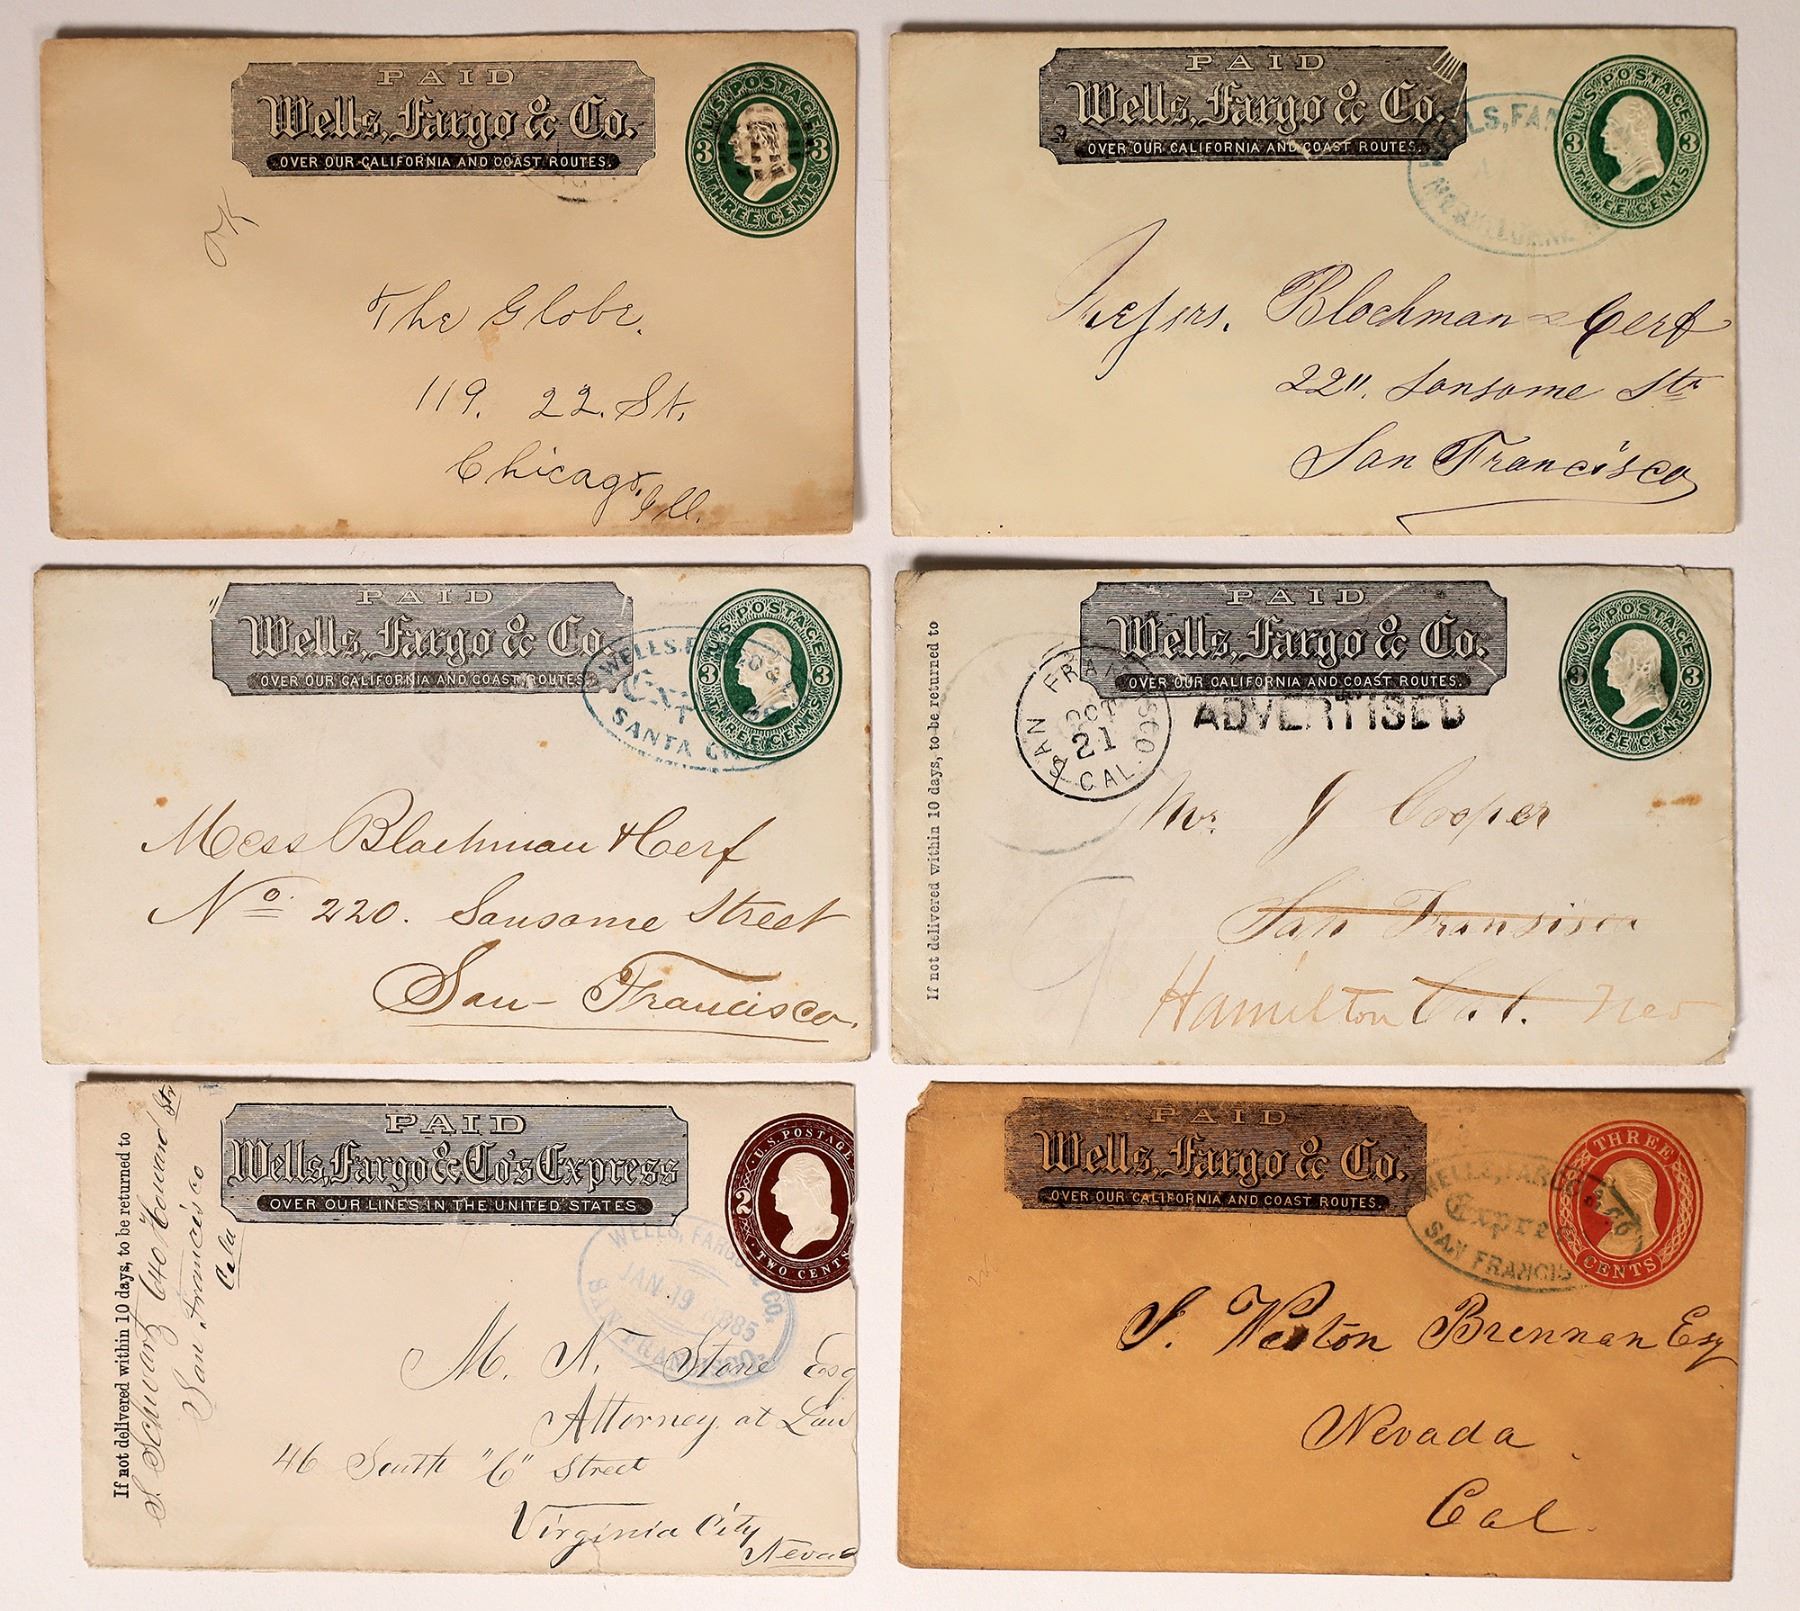 PAID
Wells, Fargo & Co.
OVER OUR CALIFORNIA AND COAST ROUTES.
U.S. POSTAGE
3 3
THREE CENTS
OK
The Globe.
119. 22. St.
Chicago, Ill.
PAID
Wells, Fargo & Co.
OVER OUR CALIFORNIA AND COAST ROUTES.
U.S. POSTAGE
3 3
THREE CENTS
Messrs. Blochman & Cerf
22", Sansome Str
San Francisco
PAID
Wells, Fargo & Co.
OVER OUR CALIFORNIA AND COAST ROUTES.
U.S. POSTAGE
3 3
THREE CENTS
WELLS, FARGO & CO
SANTA
Mess Blochman & Cerf
No. 220. Sansome Street
San Francisco.
PAID
Wells, Fargo & Co.
OVER OUR CALIFORNIA AND COAST ROUTES.
U.S. POSTAGE
3 3
THREE CENTS
If not delivered within 10 days, to be returned to
SAN FRANCISCO
OCT
21
CAL.
ADVERTISED
Mr. J Cooper
San Fransisco
Hamilton Cal. Nev
PAID
Wells, Fargo & Co's Express
OVER OUR LINES IN THE UNITED STATES
U.S. POSTAGE
2
TWO CENTS
If not delivered within 10 days, to be returned to
S. Schwarz 640 Howard Str
San Francisco
Cala
WELLS, FARGO & CO.
JAN. 19 1885
SAN FRANCISCO
M. N. Stone Esq
Attorney at Law
46 South "C" Street
Virginia City
Nevad
PAID
Wells, Fargo & Co.
OVER OUR CALIFORNIA AND COAST ROUTES.
THREE
CENTS
WELLS, FARGO & CO
Expres
SAN FRANCIS
S. Weston Brennan Esq
Nevada
Cal.